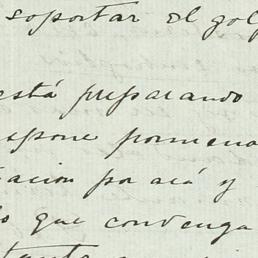 soportar el golp
está preparando
spone pormeno
ación por acá y
lo que convenga
tanta